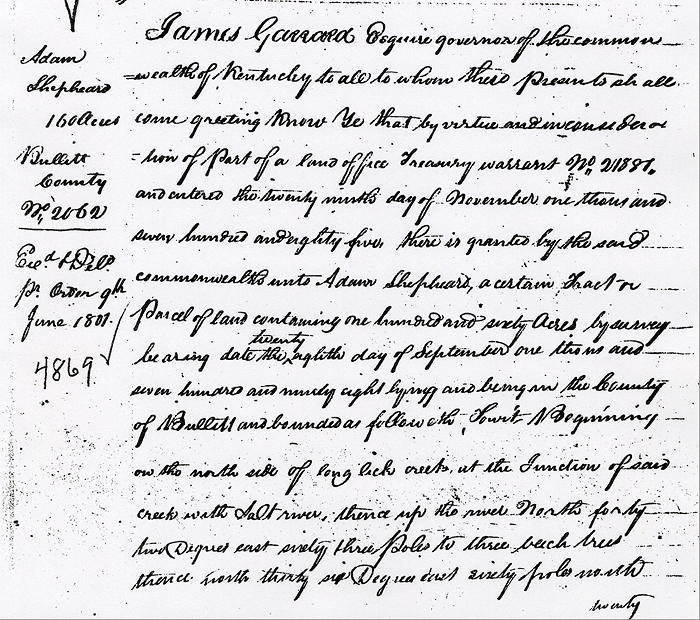 Adam
Shepheard
160 Acres
Bullitt
County
No. 2062
Exd. & Deld.
pr. Order 9th
June 1801.
4869
James Garrard Esquire governor of the common
=wealth of Kentucky to all to whom these Presents shall
come greeting Know Ye that by virtue and in considera
=tion of Part of a land office Treasury warrant No. 21881.
and entered the twenty ninth day of November one thousand
seven hundred and eighty five, there is granted by the said
commonwealth unto Adam Shepheard, a certain Tract or
Parcel of land containing one hundred and sixty Acres by survey
bearing date the twenty eighth day of September one thousand
seven hundred and ninety eight lying and being in the County
of Bullitt and bounded as followeth, Towit Beginning
on the north side of long lick creek, at the Junction of said
creek with Salt river, thence up the river North forty
two Degrees east sixty three Poles to three beech trees
thence north thirty six Degrees east sixty poles north
twenty